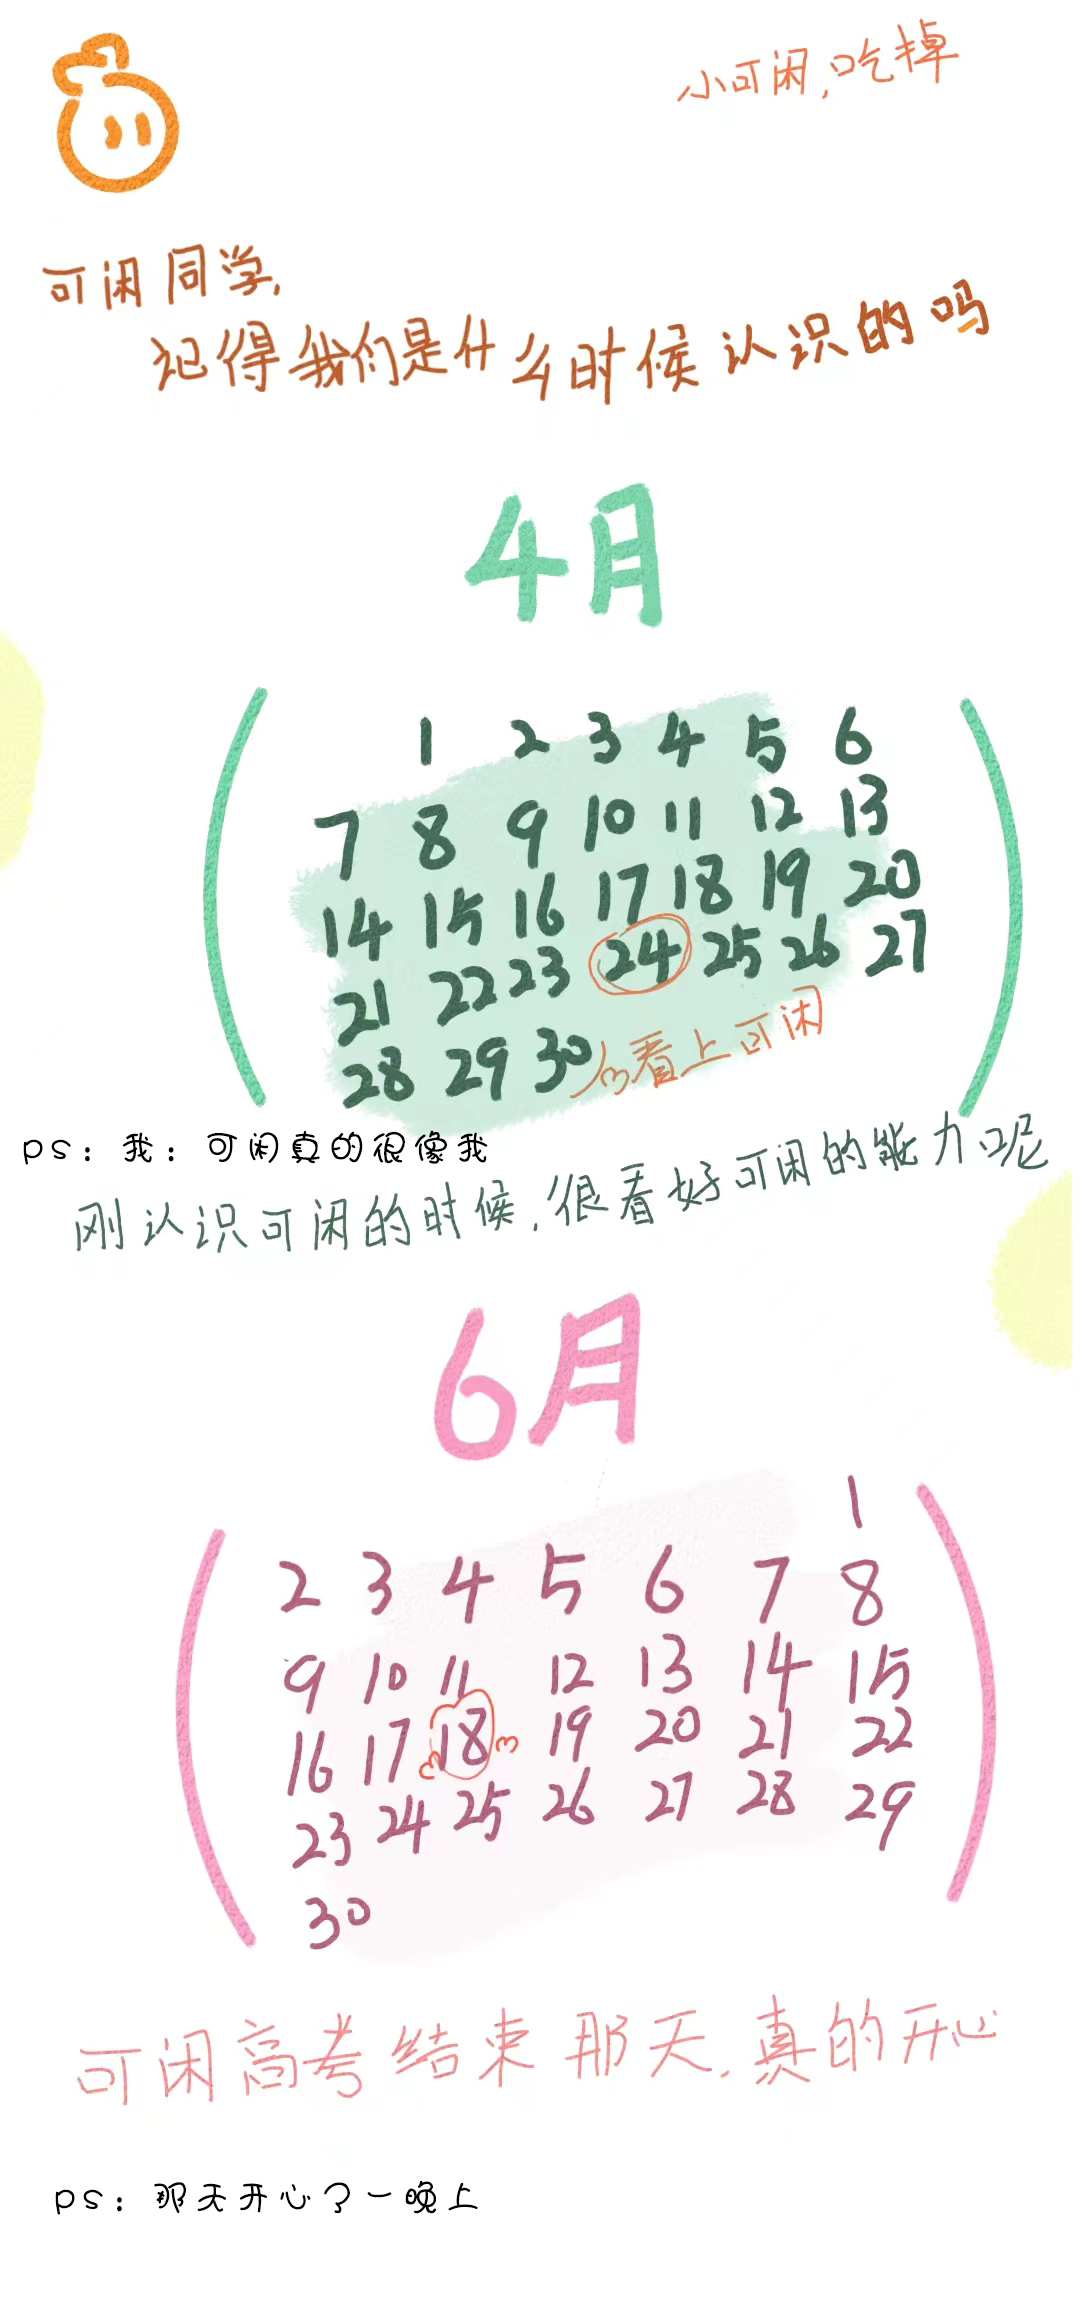 小可闲,吃掉
可闲同学,
记得我们是什么时候认识的吗
4月
1 2 3 4 5 6
7 8 9 10 11 12 13
14 15 16 17 18 19 20
21 22 23 24 25 26 27
28 29 30
看上可闲
ps:我:可闲真的很像我
刚认识可闲的时候,很看好可闲的能力呢
6月
1
2 3 4 5 6 7 8
9 10 11 12 13 14 15
16 17 18 19 20 21 22
23 24 25 26 27 28 29
30
可闲高考结束那天,真的开心
ps:那天开心了一晚上